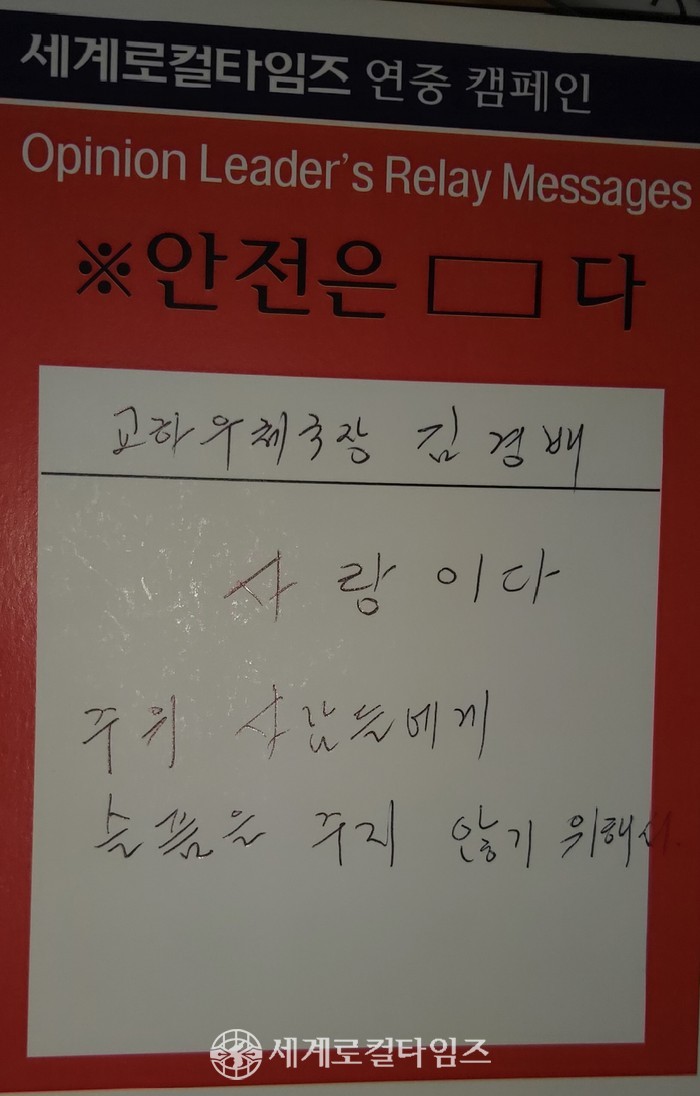 세계로컬타임즈 연중 캠페인
Opinion Leader's Relay Messages
※안전은 □ 다
교하우체국장 김경배
사랑이다
주위 사람들에게
슬픔을 주지 않기 위해서.
세계로컬타임즈